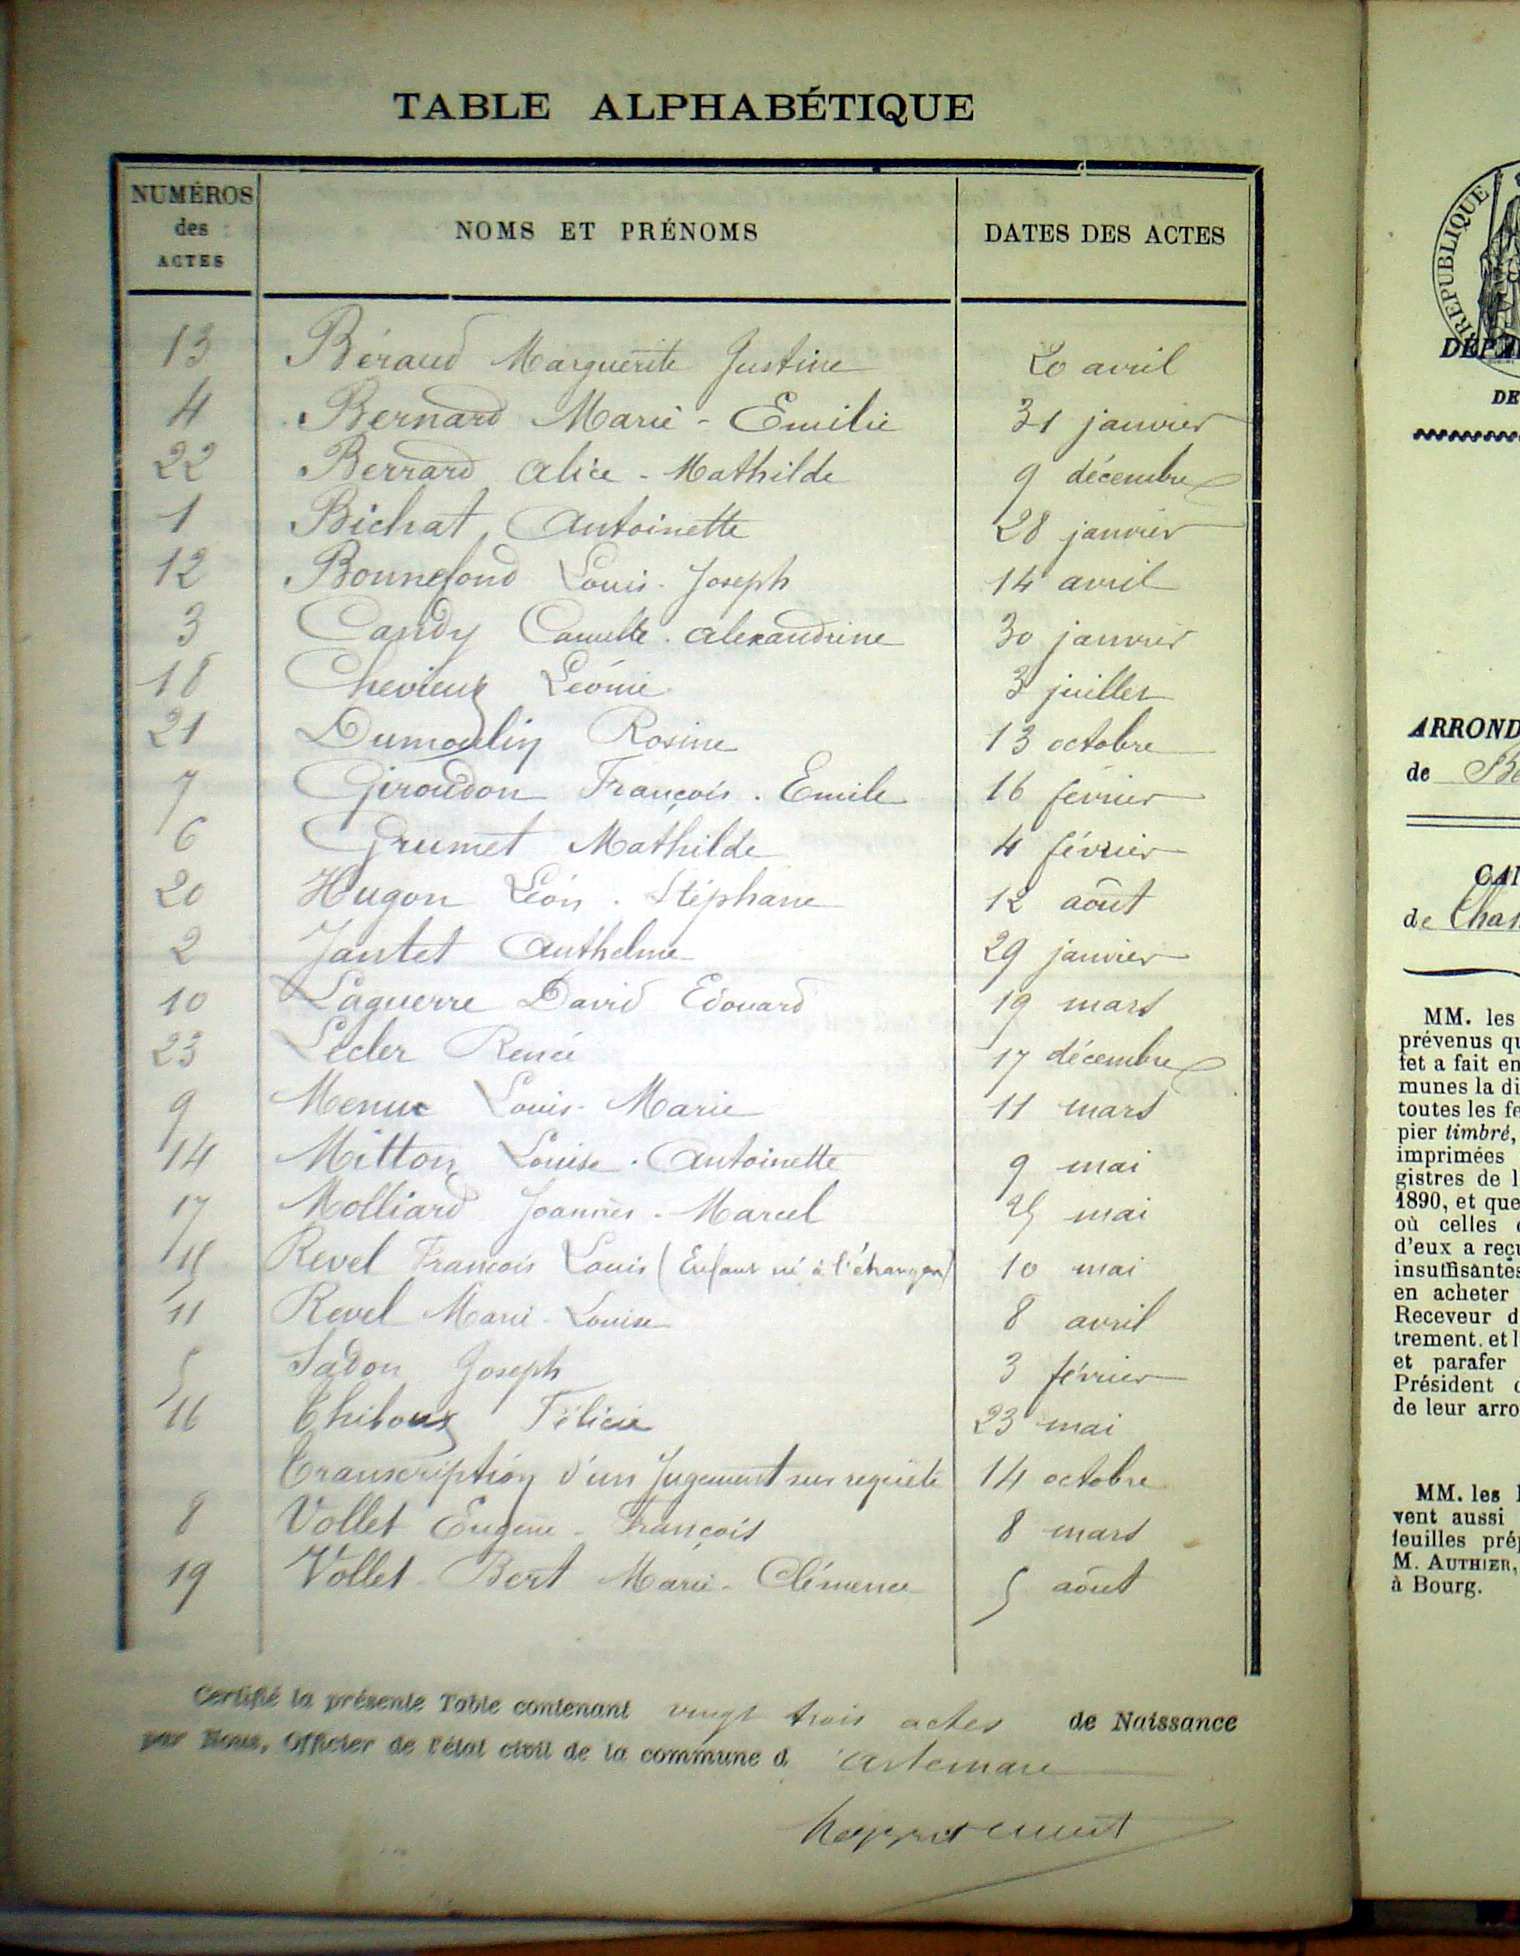 TABLE ALPHABÉTIQUE
NUMÉROS des ACTES NOMS ET PRÉNOMS DATES DES ACTES
13 Béraud Marguerite Justine 20 avril
4 Bernard Marie - Emilie 31 janvier
22 Berrard Alice - Mathilde 9 décembre
1 Bichat Antoinette 28 janvier
12 Bonnefond Louis - Joseph 14 avril
3 Candy Camille - Alexandrine 30 janvier
18 Chevieux Léonie 3 juillet
21 Dumoulin Rosine 13 octobre
7 Giroudon François - Emile 16 février
6 Grumet Mathilde 4 février
20 Hugon Léon - Stéphane 12 août
2 Jantet Anthelme 29 janvier
10 Laguerre David Edouard 19 mars
23 Lecler René 17 décembre
9 Menue Louis - Marie 11 mars
14 Mitton Louise - Antoinette 9 mai
17 Molliard Joannès - Marcel 25 mai
15 Revel François Louis (Enfant né à l'étranger) 10 mai
11 Revel Marie - Louise 8 avril
5 Sadon Joseph 3 février
16 Thiboux Félicie 23 mai
Transcription d'un Jugement sur requête 14 octobre
8 Vollet Eugène - François 8 mars
19 Vollet - Bert Marie - Clémence 5 août
Certifié la présente Table contenant vingt trois actes de Naissance
par Nous, Officier de l'état civil de la commune d'Artemare
RÉPUBLIQUE
DE
ARROND
de Be
CAN
de Cham
MM. les
prévenus qu
fet a fait en
munes la di
toutes les fe
pier timbré,
imprimées
gistres de l
1890, et que
où celles
d'eux a reçu
insuffisantes
en acheter
Receveur d
trement, et l
et parafer
Président
de leur arro
MM. les
vent aussi
feuilles prép
M. AUTHIER,
à Bourg.